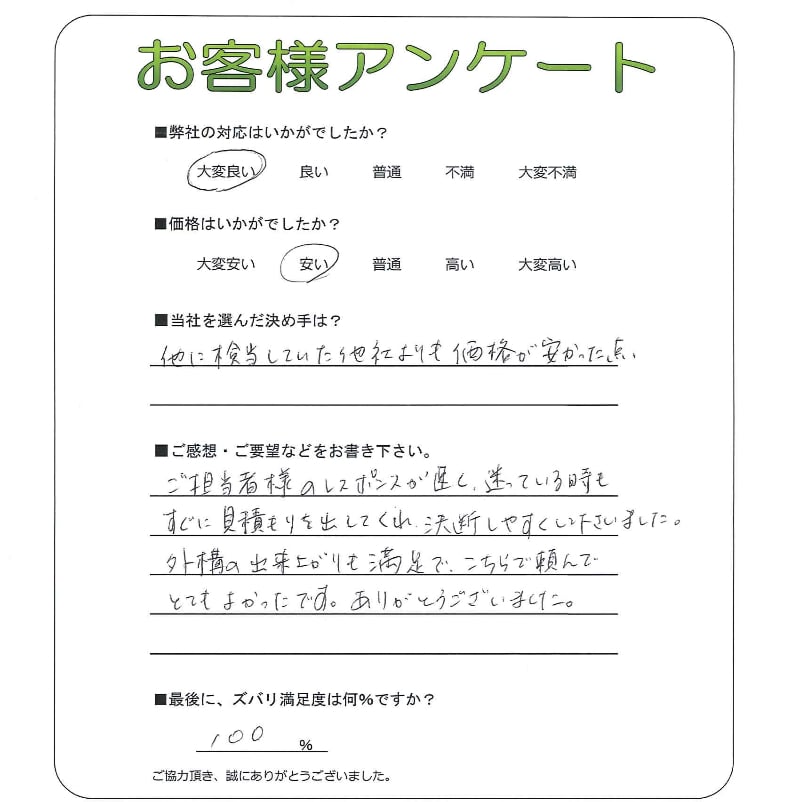 お客様アンケート
■弊社の対応はいかがでしたか？
大変良い 良い 普通 不満 大変不満
■価格はいかがでしたか？
大変安い 安い 普通 高い 大変高い
■当社を選んだ決め手は？
他に検当していた他社よりも価格が安かった点
■ご感想・ご要望などをお書き下さい。
ご担当者様のレスポンスが速く、迷っている時も
すぐに見積もりを出してくれ、決断しやすくして下さいました。
外構の出来上がりも満足で、こちらで頼んで
とてもよかったです。ありがとうございました。
■最後に、ズバリ満足度は何%ですか？
100 %
ご協力頂き、誠にありがとうございました。